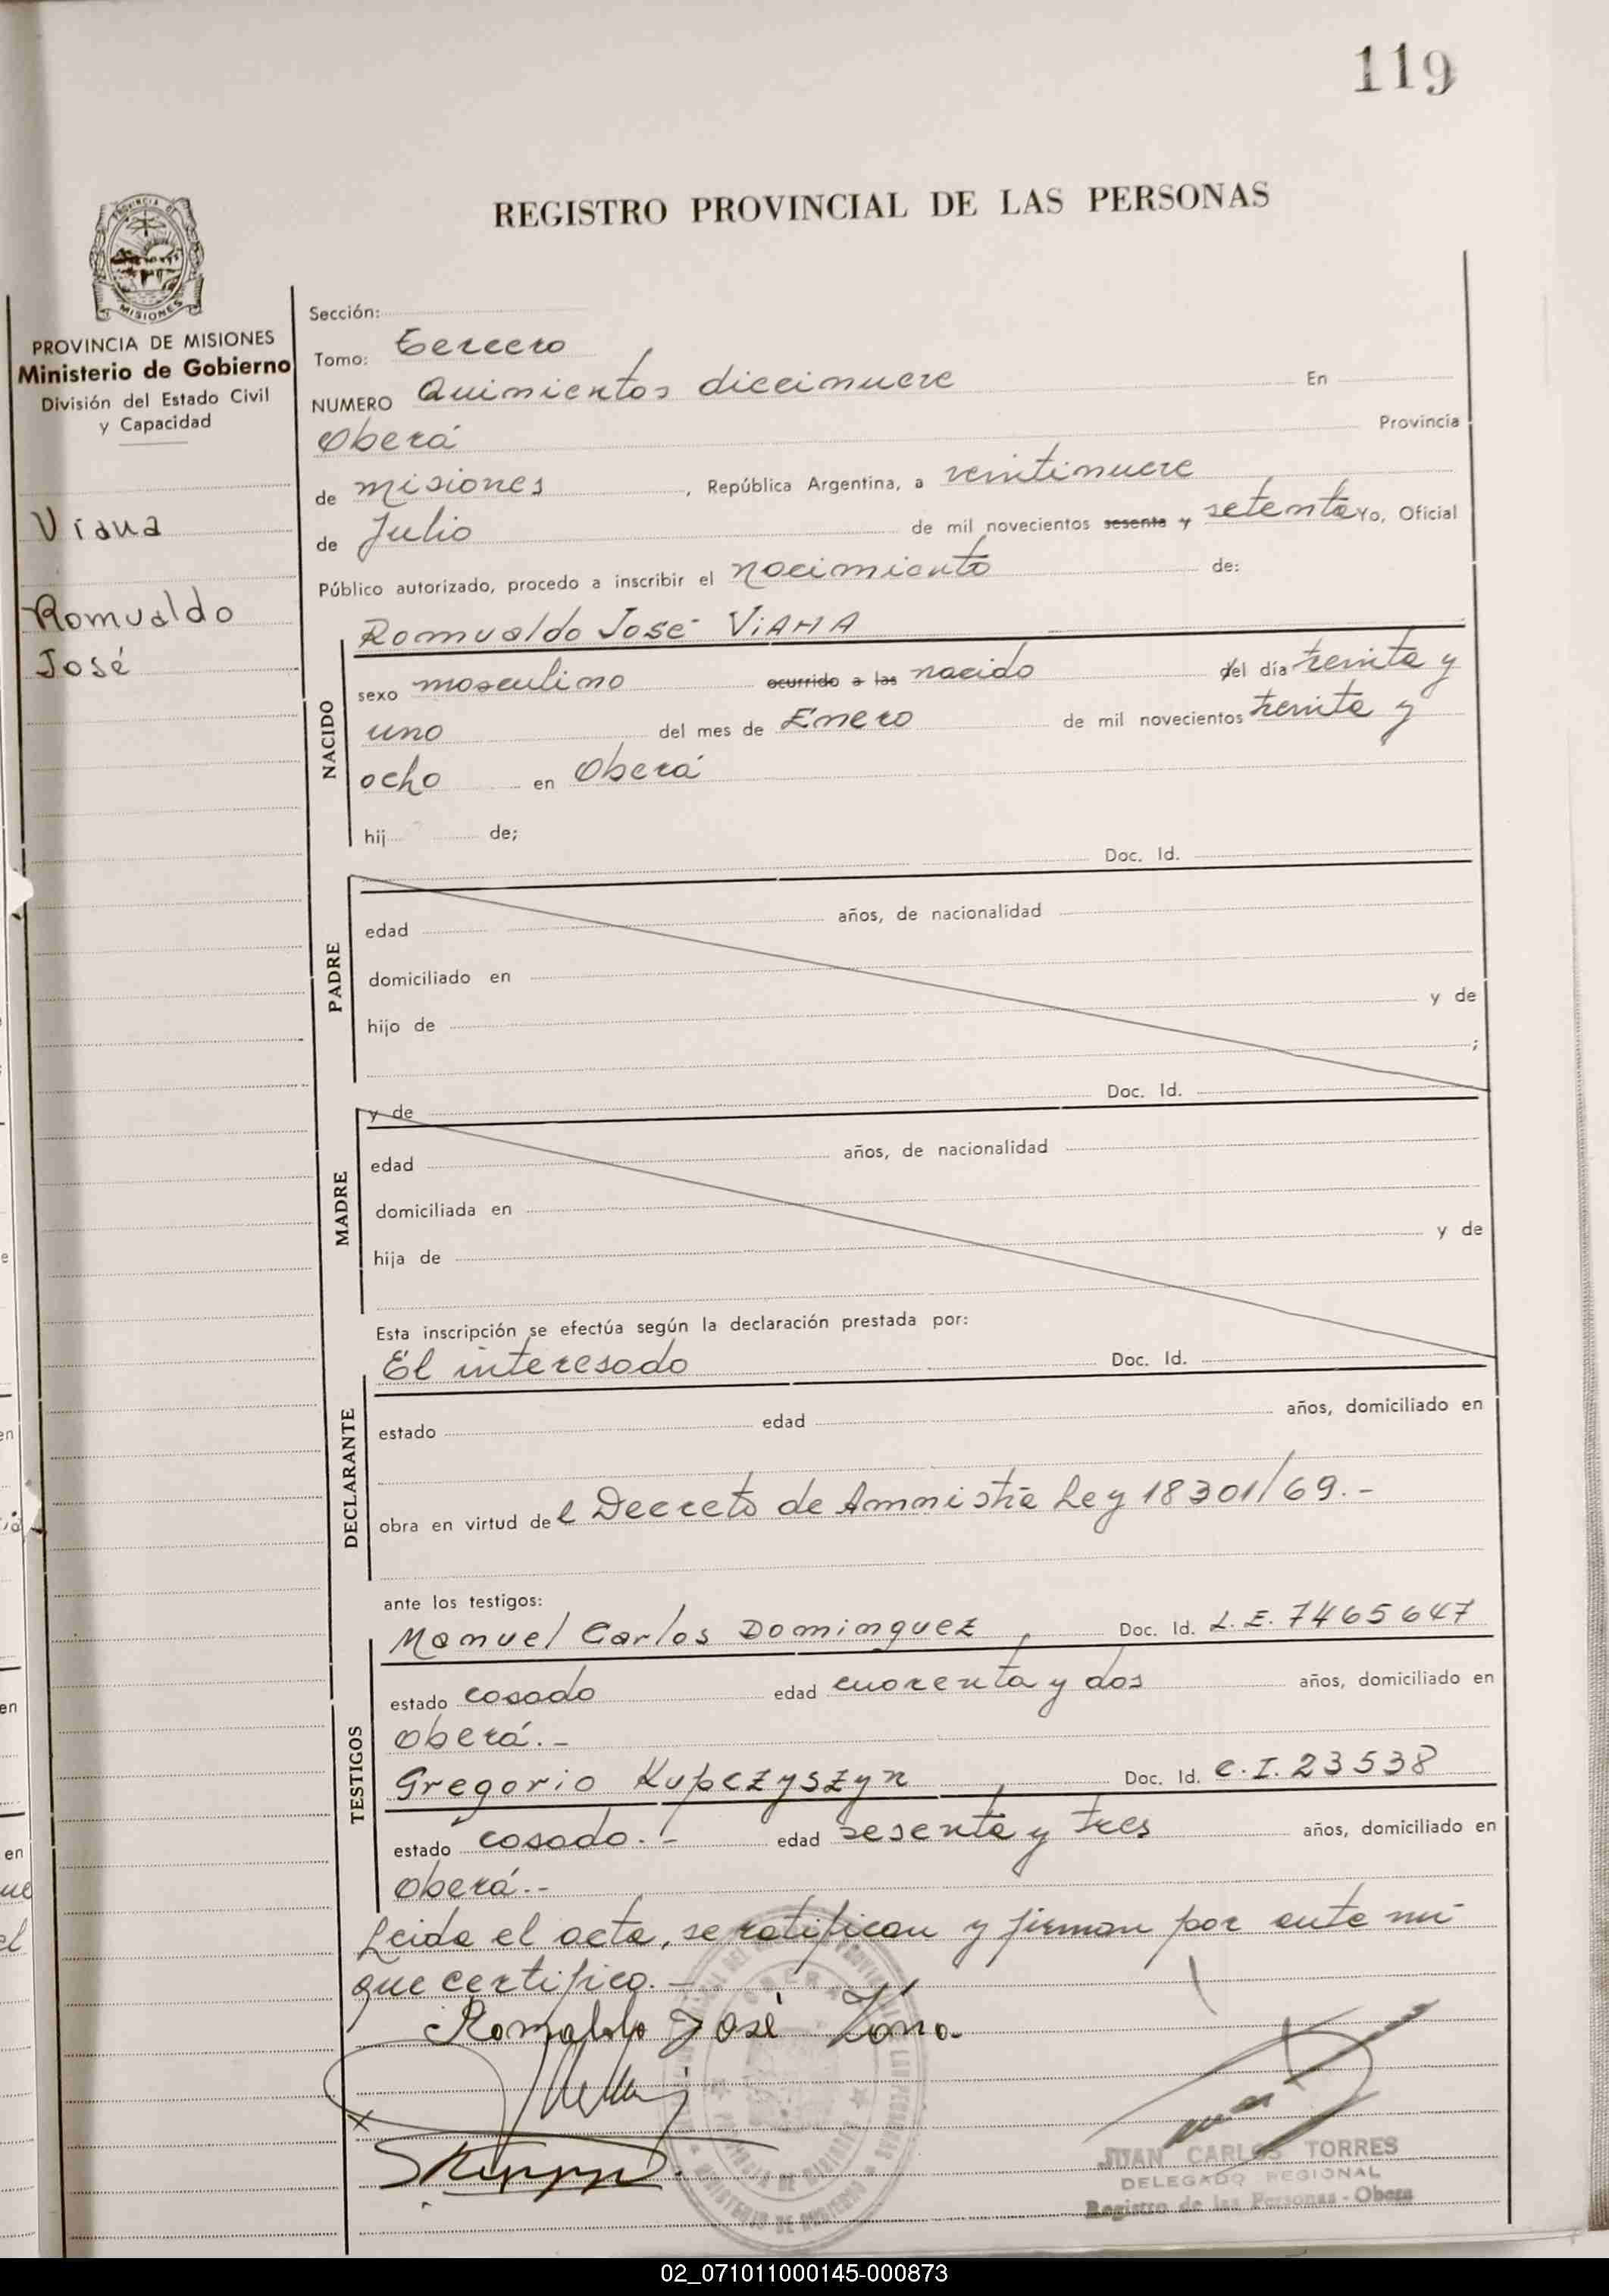 119
REGISTRO PROVINCIAL DE LAS PERSONAS
PROVINCIA DE
MISIONES
PROVINCIA DE MISIONES
Ministerio de Gobierno
División del Estado Civil
y Capacidad
Viana
Romualdo
José
Sección:
Tomo: Tercero
NUMERO Quinientos diecinueve En
Oberá Provincia
de Misiones, República Argentina, a veintinueve
de Julio de mil novecientos sesenta y setenta Yo, Oficial
Público autorizado, procedo a inscribir el nacimiento de:
Romualdo José VIANA
NACIDO
sexo masculino ocurrido a las nacido del día treinta y
uno del mes de Enero de mil novecientos treinta y
ocho en Oberá
hij de;
Doc. Id.
PADRE
edad años, de nacionalidad
domiciliado en
hijo de y de
;
y de Doc. Id.
MADRE
edad años, de nacionalidad
domiciliada en
hija de y de
Esta inscripción se efectúa según la declaración prestada por:
El interesado Doc. Id.
DECLARANTE
estado edad años, domiciliado en
obra en virtud del Decreto de Amnistia Ley 18301/69.-
ante los testigos:
Manuel Carlos Dominguez, Doc. Id. L.E. 7465647
TESTIGOS
estado casado edad cuarenta y dos años, domiciliado en
Oberá.-
Gregorio Kupczyszyn, Doc. Id. C.I. 23538
estado casado.- edad sesenta y tres años, domiciliado en
Oberá.--
Leida el acta, se ratifican y firman por ante mi
que certifico.-
Romaldo José Viana
JUAN CARLOS TORRES
DELEGADO REGIONAL
Registro de las Personas - Obera
02_071011000145-000873